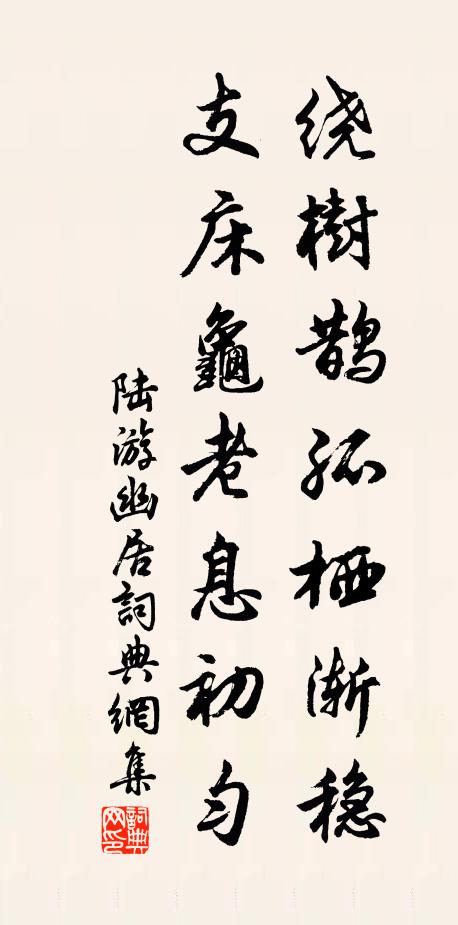 绕樹鹊孤栖渐稳
支床龜老息初匀
陆游幽居詞典網集
詞典网印